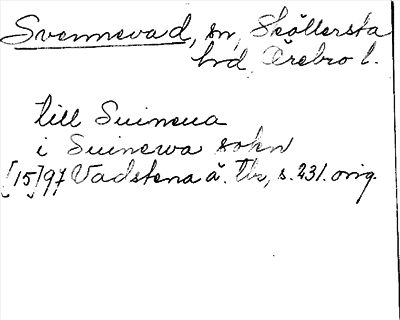 Svennevad, sn, Sköllersta
hd, Örebro l.
till Suineua
i Suinewa sokn
[15]97 Vadstena ä. tb, s. 231. orig.